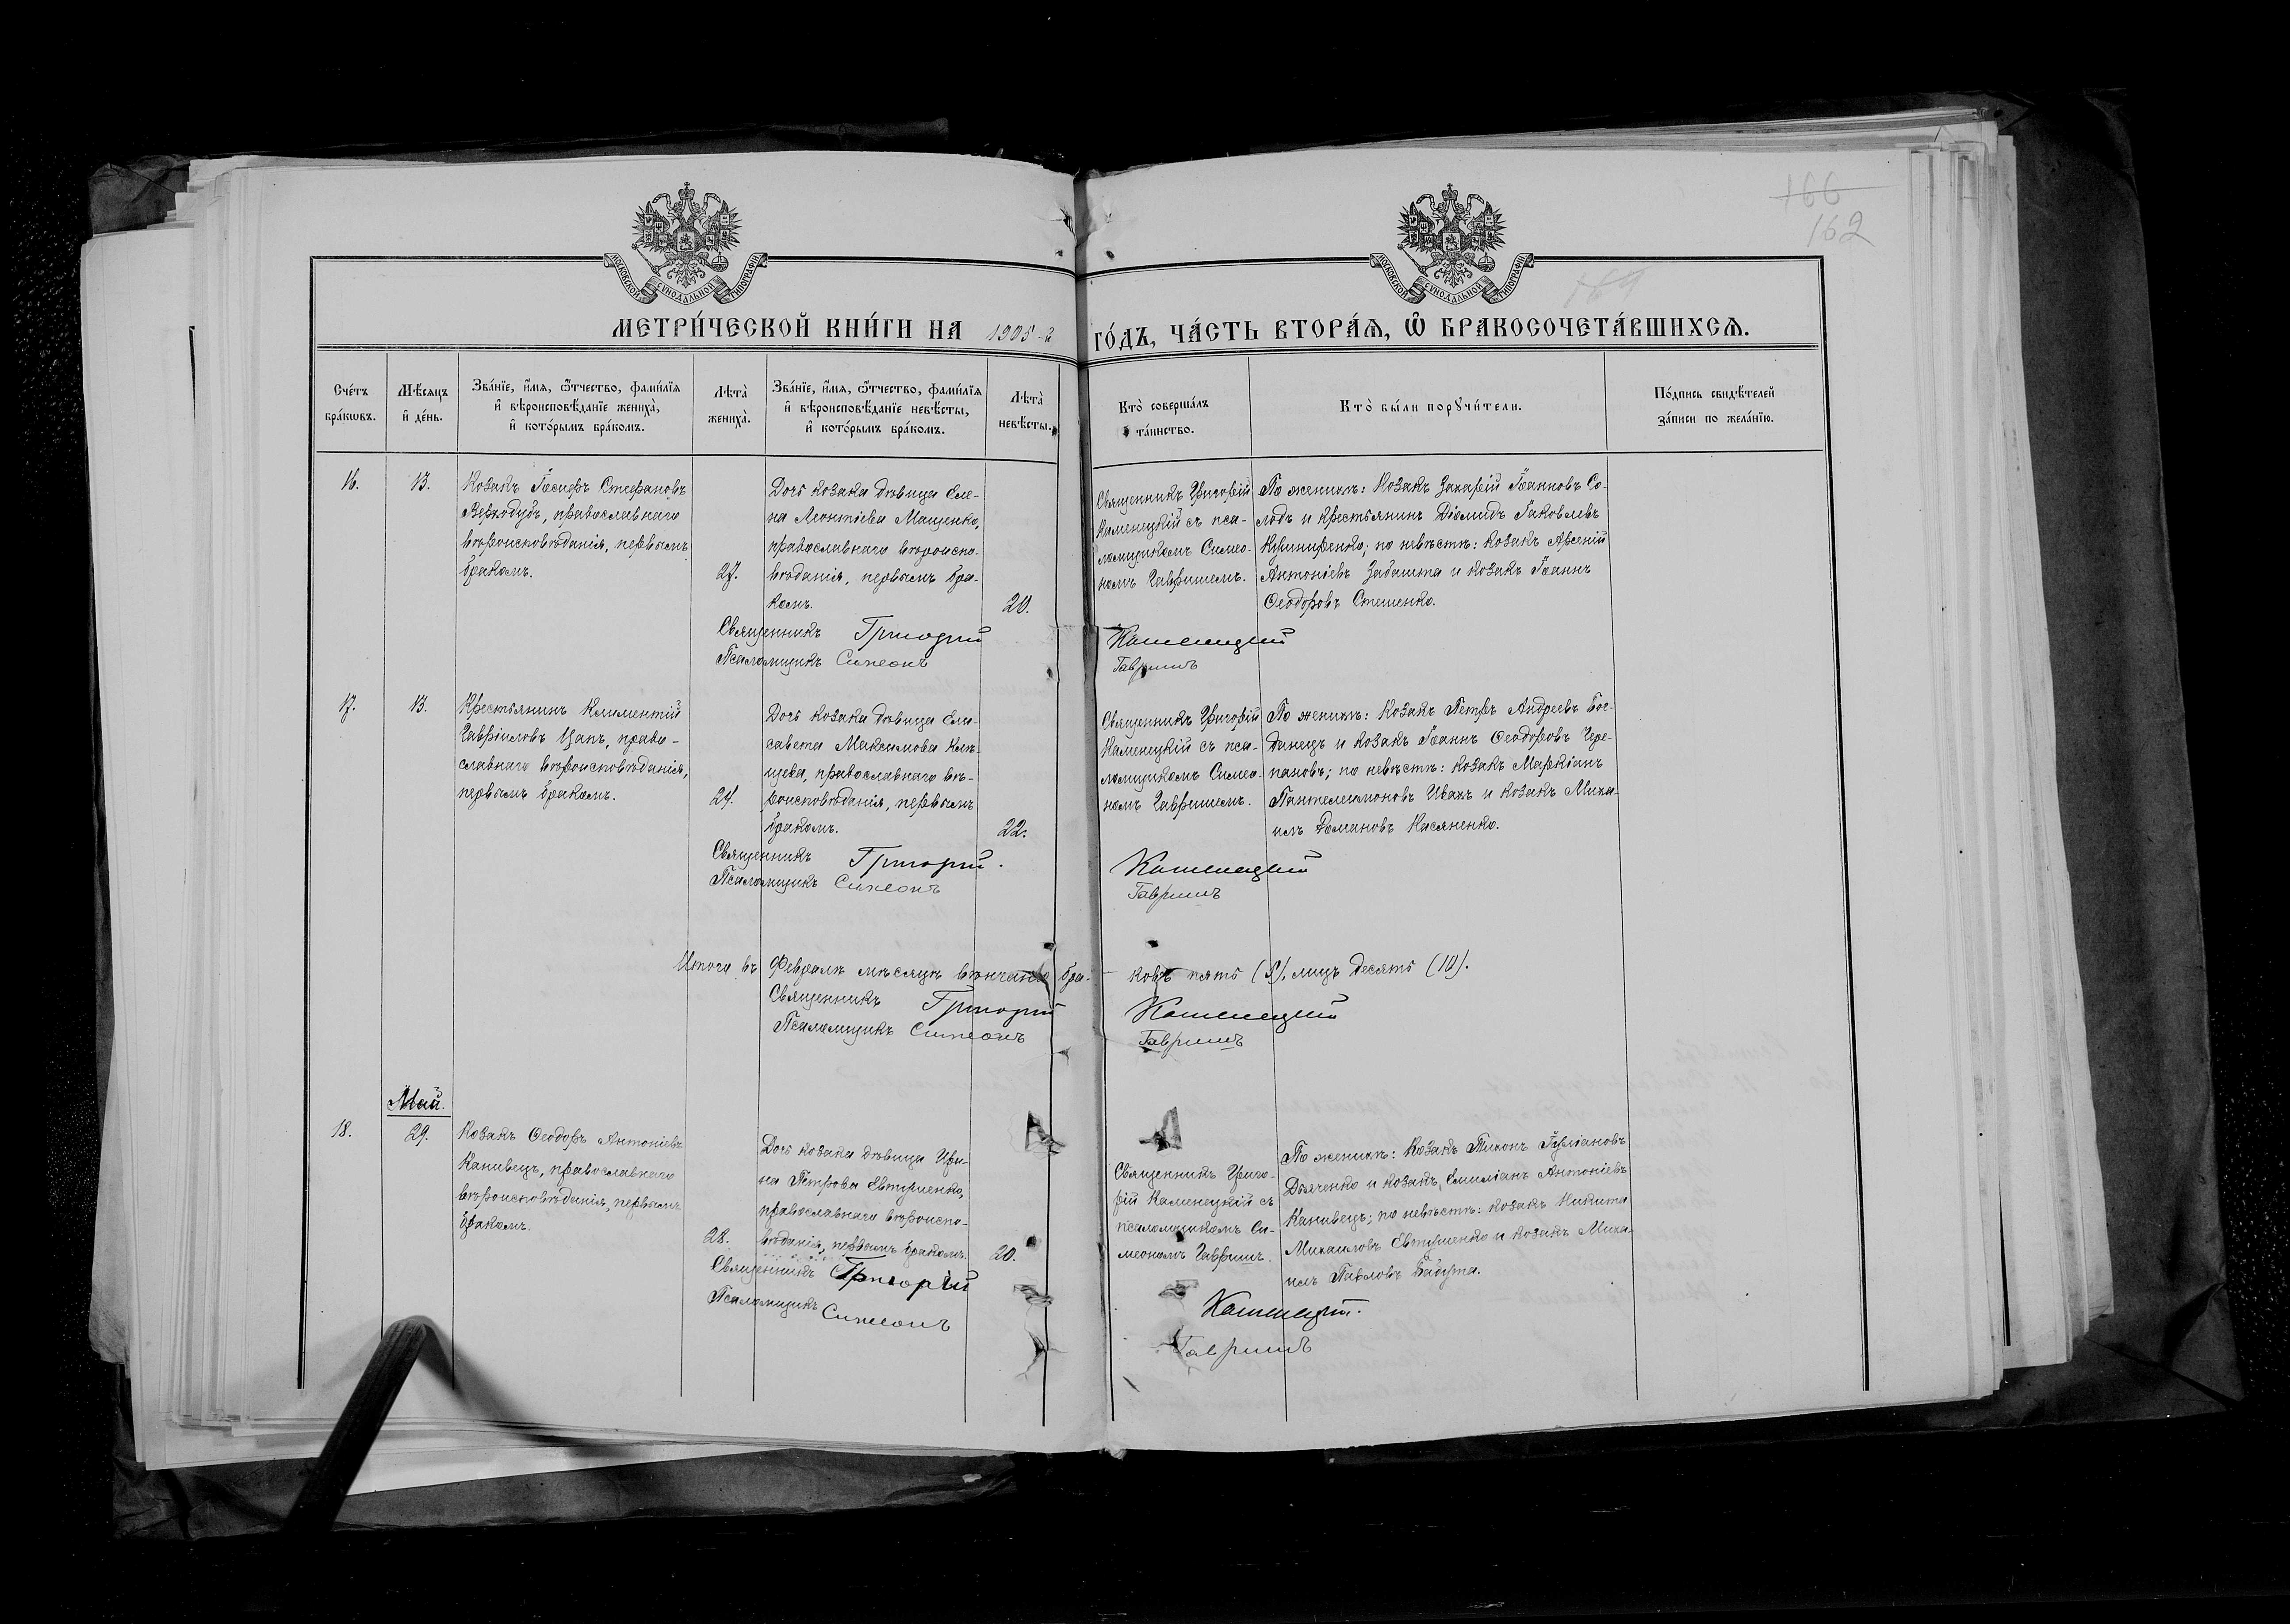 166
162
169
МОСКОВСКОЙ СѴНОДАЛЬНОЙ ТИПОГРАФІИ
МОСКОВСКОЙ СѴНОДАЛЬНОЙ ТИПОГРАФІИ
МЕТРИ́ЧЕСКОЙ КНИ́ГИ НА 1905-й ГО́ДЪ, ЧА́СТЬ ВТОРА́Ѧ, Ѽ БРАКОСОЧЕТА́ВШИХСѦ.
Сче́тъ
бра́кѡвъ.
Мѣ́сяцъ
и҆ де́нь.
Зва́нїе, и҆́мя, ѻ҆́тчество, фами́лїя
и҆ вѣроисповѣ́данїе жениха̀,
и҆ кото́рымъ бра́комъ.
Лѣта̀
жениха̀.
Зва́нїе, и҆́мя, ѻ҆́тчество, фами́лїя
и҆ вѣроисповѣ́данїе невѣ́сты,
и҆ кото́рымъ бра́комъ.
Лѣта̀
невѣ́сты.
Кто̀ соверша́лъ
та́инство.
Кто̀ бы́ли порꙋчи́тели.
По́дпись свидѣ́телей
за́писи по жела́нїю.
16.
13.
Козакъ Іосифъ Стефановъ
Верходубъ, православнаго
вѣроисповѣданія, первымъ
бракомъ.
27.
Дочь козака дѣвица Еле-
на Леонтіева Мащенко,
православнаго вѣроиспо-
вѣданія, первымъ бра-
комъ.
20.
Священникъ Григорій
Каменецкій съ пса-
ломщикомъ Симео-
номъ Гавришемъ.
По женихѣ: Козакъ Захарій Іоанновъ Со-
лодъ и крестьянинъ Діомидъ Іаковлевъ
Кушниренко; по невѣстѣ: козакъ Арсеній
Антоніевъ Забашта и козакъ Іоаннъ
Ѳеодоровъ Стешенко.
Священникъ Григорій Каменецкій
Псаломщикъ Симеонъ Гавришъ
17.
13.
Крестьянинъ Климентій
Гавріиловъ Цапъ, право-
славнаго вѣроисповѣданія,
первымъ бракомъ.
24.
Дочь козака дѣвица Ели-
савета Максимова Клѣ-
щева, православнаго вѣ-
роисповѣданія, первымъ
бракомъ.
22.
Священникъ Григорій
Каменецкій съ пса-
ломщикомъ Симео-
номъ Гавришемъ.
По женихѣ: Козакъ Петръ Андреевъ Бог-
данецъ и козакъ Іоаннъ Ѳеодоровъ Чере-
пановъ; по невѣстѣ: козакъ Маркіанъ
Пантелеимоновъ Ивахъ и козакъ Миха-
илъ Романовъ Касяненко.
Священникъ Григорій. Каменецкій
Псаломщикъ Симеонъ Гавришъ
Итого въ Февралѣ мѣсяцѣ вѣнчано бра- ковъ пять (5), лицъ десять (10).
Священникъ Григорій Каменецкій
Псаломщикъ Симеонъ Гавришъ
Май.
18.
29.
Козакъ Ѳеодоръ Антоніевъ
Канивецъ, православнаго
вѣроисповѣданія, первымъ
бракомъ.
28.
Дочь козака дѣвица Ири-
на Петрова Евтушенко,
православнаго вѣроиспо-
вѣданія, первымъ бракомъ.
20.
Священникъ Григо-
рій Каменецкій съ
псаломщикомъ Си-
меономъ Гавришъ.
По женихѣ: Козакъ Тихонъ Іуліановъ
Дьяченко и козакъ Емиліанъ Антоніевъ
Канивецъ; по невѣстѣ: козакъ Никита
Михаиловъ Евтушенко и козакъ Миха-
илъ Павловъ Бабута.
Священникъ Григорій Каменецкій.
Псаломщикъ Симеонъ Гавришъ